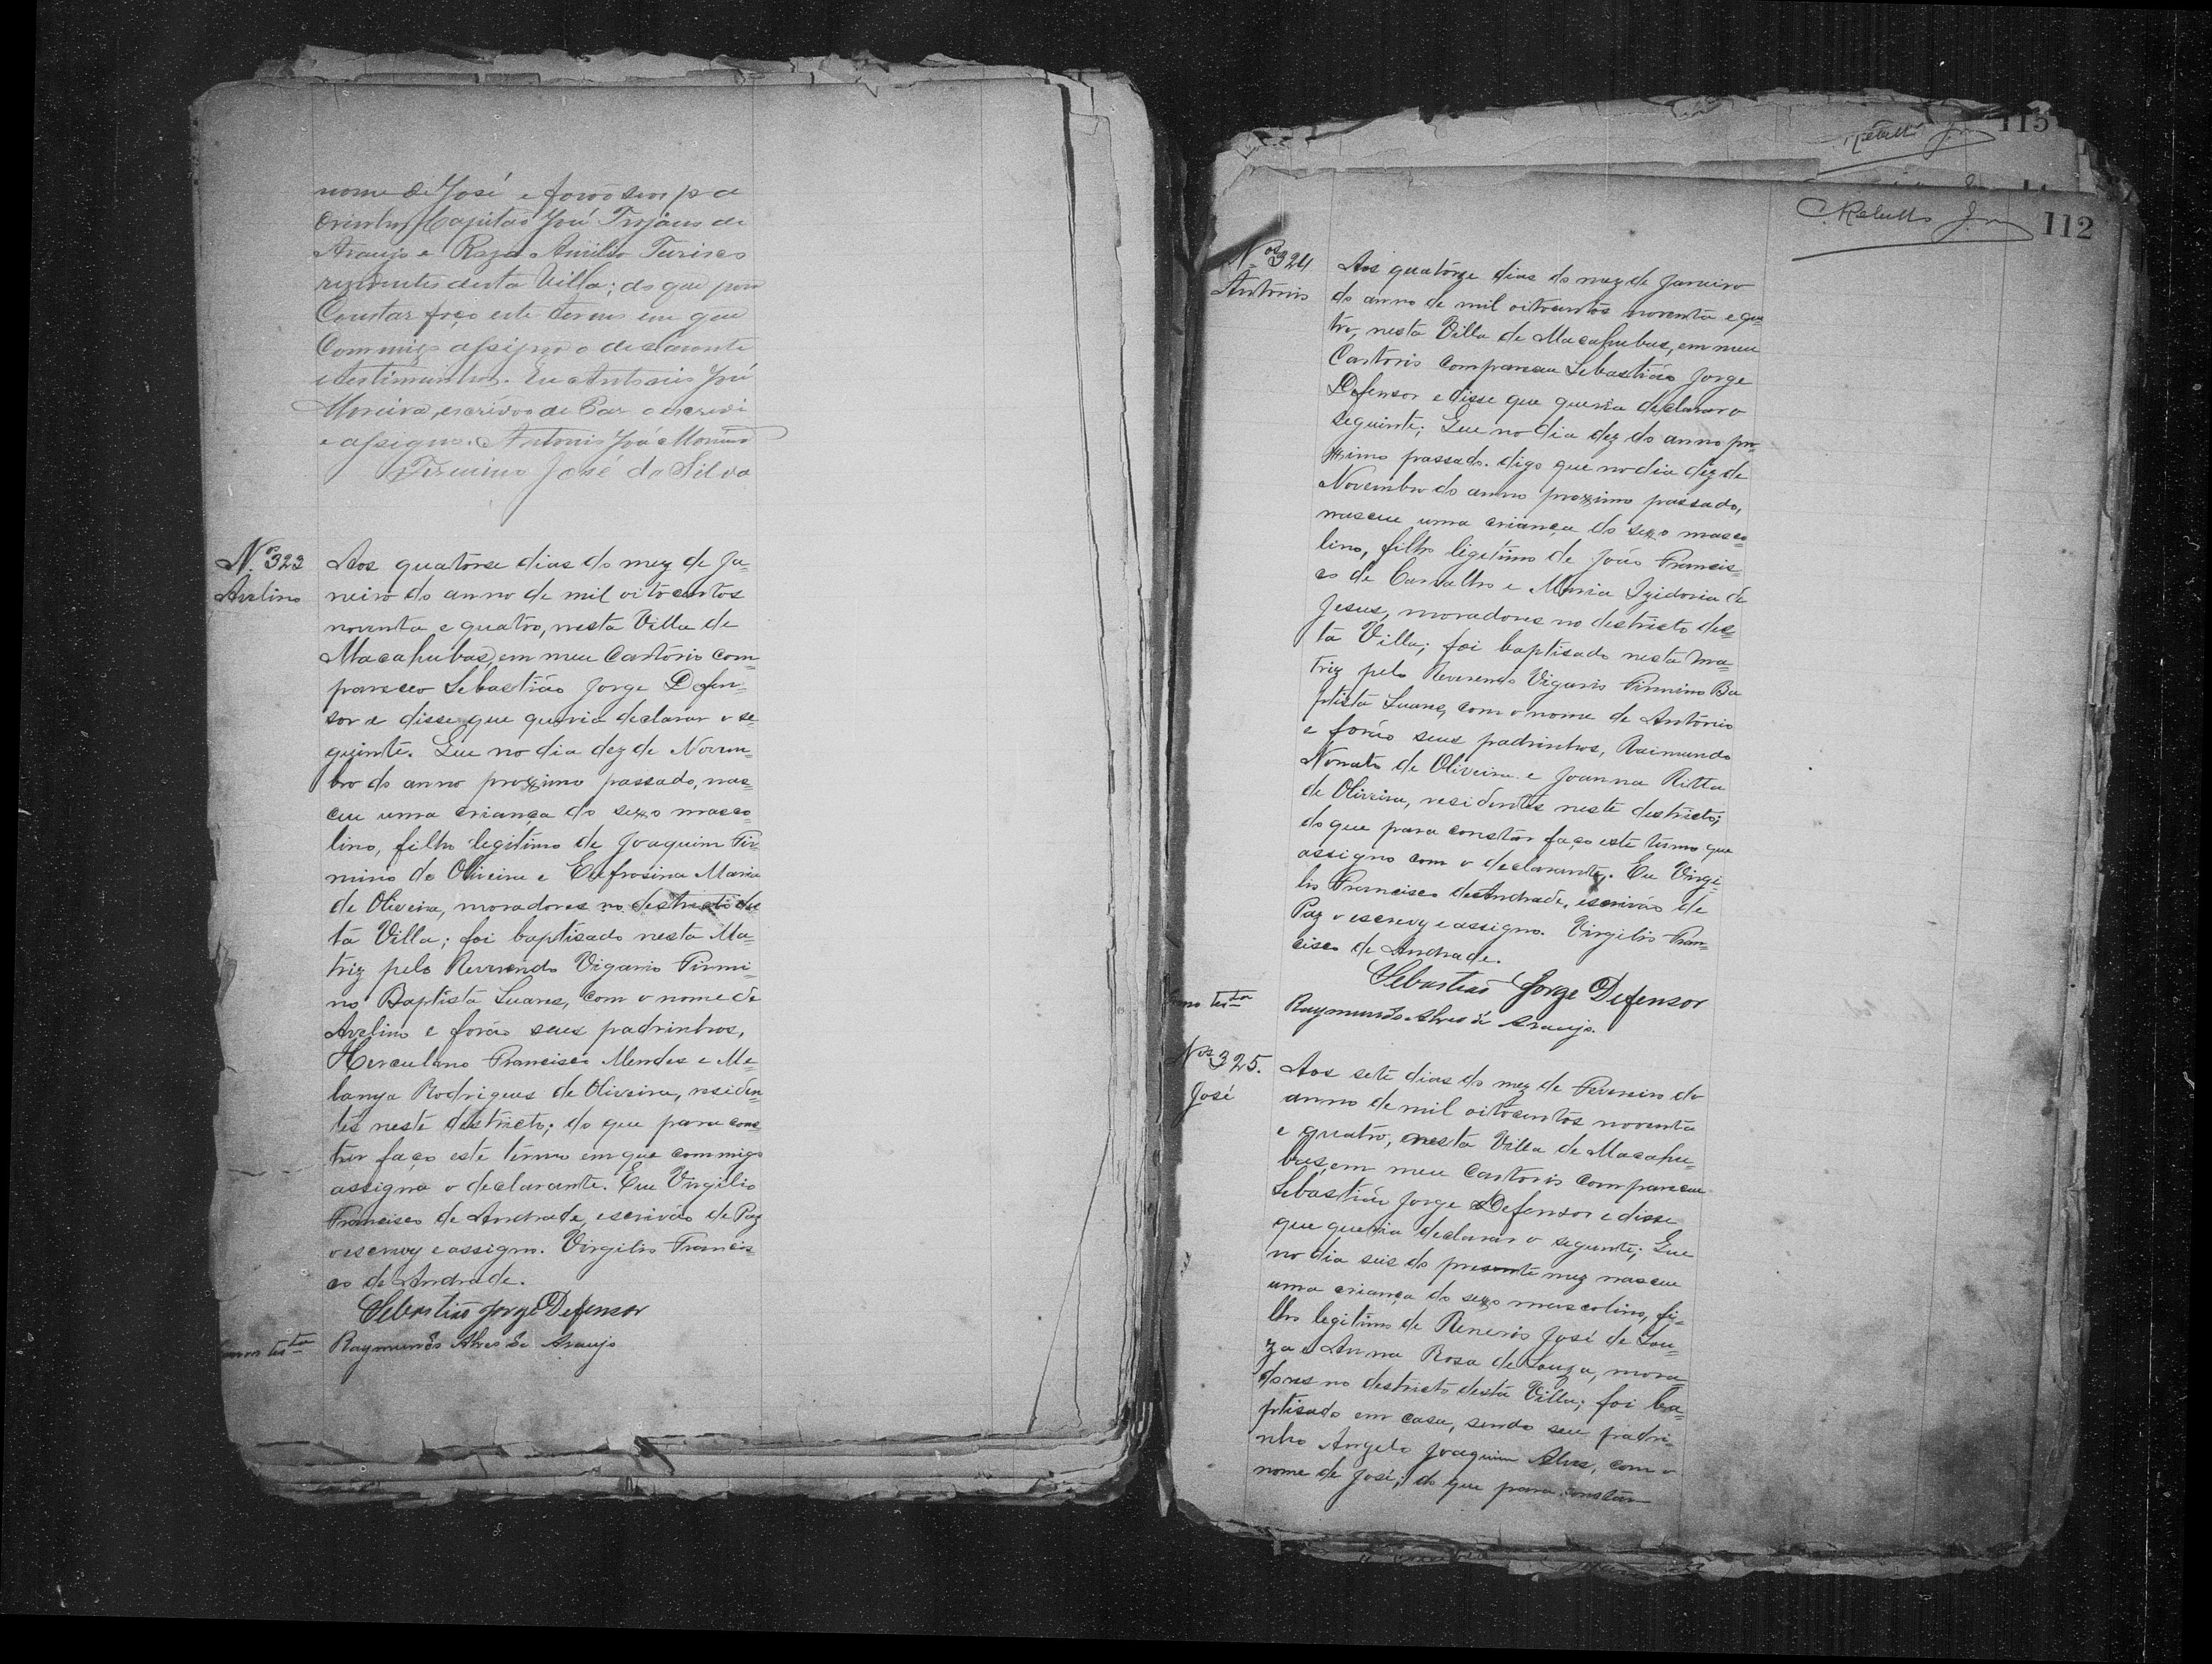 nome de José e forão seus pa
drinhos Capitão José Trajano de
Araujo e Roza Amilia
residentes desta Villa; do que para
Constar faço este termo em que
Commigo assigno o declarante
e testimunhas. Eu Antonio José
Moreira, escrivão de Paz o escrevi
e assigno. Antonio José Moreira
Firmino José da Silva
Nº 323
Avelino
Aos quatorse dias do mez de Ja-
neiro do anno de mil oitocentos
noventa e quatro, nesta Villa de
Macahubas, em meu Cartorio com-
pareceo Sebastião Jorge Defen-
sor e disse que queria declarar o se-
guinte. Que no dia dez de Novem-
bro do anno proximo passado, nas-
ceu uma criança do sexo masco-
lino, filho legitimo de Joaquim Fir-
mino de Oliveira e Eufrosina Maria
de Oliveira, moradores no destricto des
ta Villa; foi baptisado nesta Ma-
triz pelo Reverendo Vigario Firmi-
no Baptista Soares, com o nome de
Avelino e forão seus padrinhos,
Herculano Francisco Mendes e Me-
lanya Rodrigues de Oliveira, residen-
tes neste destricto; do que para cons-
tar faço este termo em que commigo
assigna o declarante. Eu Virgilio
Francisco de Andrade, escrivão de Paz
o escrevy e assigno. Virgilio Francis-
co de Andrade.
Sebastião Jorge Defensor
como testa
Raymundo Alves de Araujo
115
112
Nos 324
Antonio
Aos quatorze dias do mez de Janeiro
do anno de mil oitocentos noventa e qua-
tro, nesta Villa de Macahubas, em meu
Cartorio compareceu Sebastião Jorge
Defensor e disse que queria declarar o
seguinte; Que no dia dez do anno pro-
ximo passado. digo que no dia dez de
Novembro do anno proximo passado,
nasceu uma criança do sexo masco-
lino, filho ligitimo de João Francis-
co de Carvalho e Maria Izidoria de
Jesus, moradores no destricto des-
ta Villa; foi baptisado nesta Ma-
triz pelo Reverendo Vigario Firmino Ba
ptista Soares, com o nome de Antonio
e forão seus padrinhos, Raimundo
Nonato de Oliveira e Joanna Ritta
de Oliveira, residentes neste destricto;
do que para constar faço este termo que
assigno com o declarante. Eu Virgi-
lio Francisco de Andrade, escrivão de
Paz o escrevy e assigno. Virgilio Fran-
cisco de Andrade.
Sebastião Jorge Defensor
como testa
Raymundo Alves de Araujo.
Nos 325.
José
Aos sete dias do mez de Fevereiro do
anno de mil oitocentos noventa
e quatro, nesta Villa de Macahu-
bas, em meu Cartorio compareceu
Sebastião Jorge Defensor e disse
que queria declarar o seguinte; Que
no dia seis do presente mez nasceu
uma criança do sexo mascolino, fi-
lho legitimo de Renerio José de Sou-
za e Anna Rosa de Souza, mora-
dores no destricto desta Villa; foi ba-
ptisado em casa, sendo seu padri-
nho Angelo Joaquim Alves, com o
nome de José; do que para constar